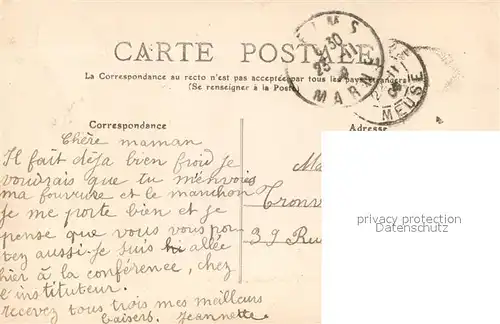 CARTE POSTALE
La Correspondance au recto n'est pas acceptée par tous les pays étrangers
(Se renseigner à la Poste)
MARNE
MEUSE
Correspondance
Adresse
Chère maman
Il fait déja bien froid je
voudrais que tu m'envoies
ma fourrure et le manchon
je me porte bien et je
pense que vous vous por
tez aussi. Je suis allée
hier à la conférence, chez
l'instituteur.
recevez tous trois mes meilleurs
baisers. Jeannette
Ma
Tronv
39 Ru
privacy protection
Datenschutz